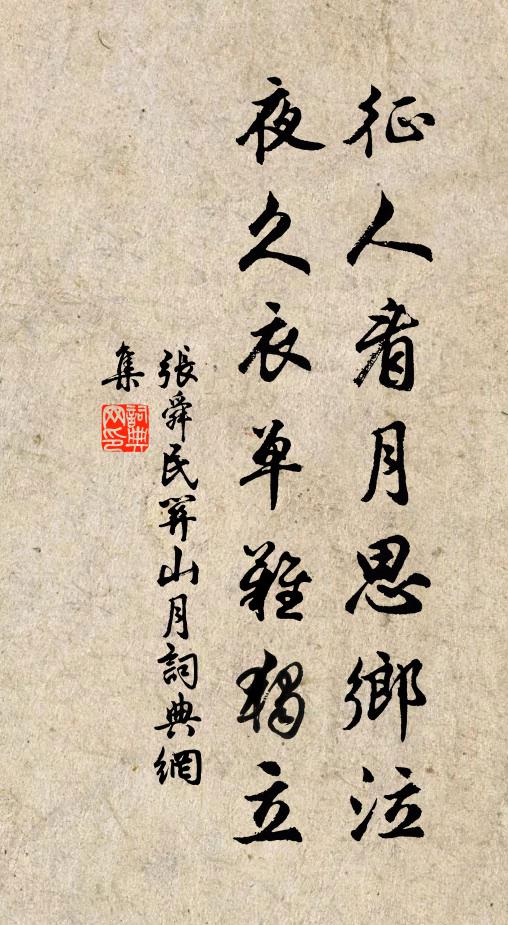 征人看月思鄉泣
夜久衣单難獨立
張舜民関山月詞典網
集
詞典網印